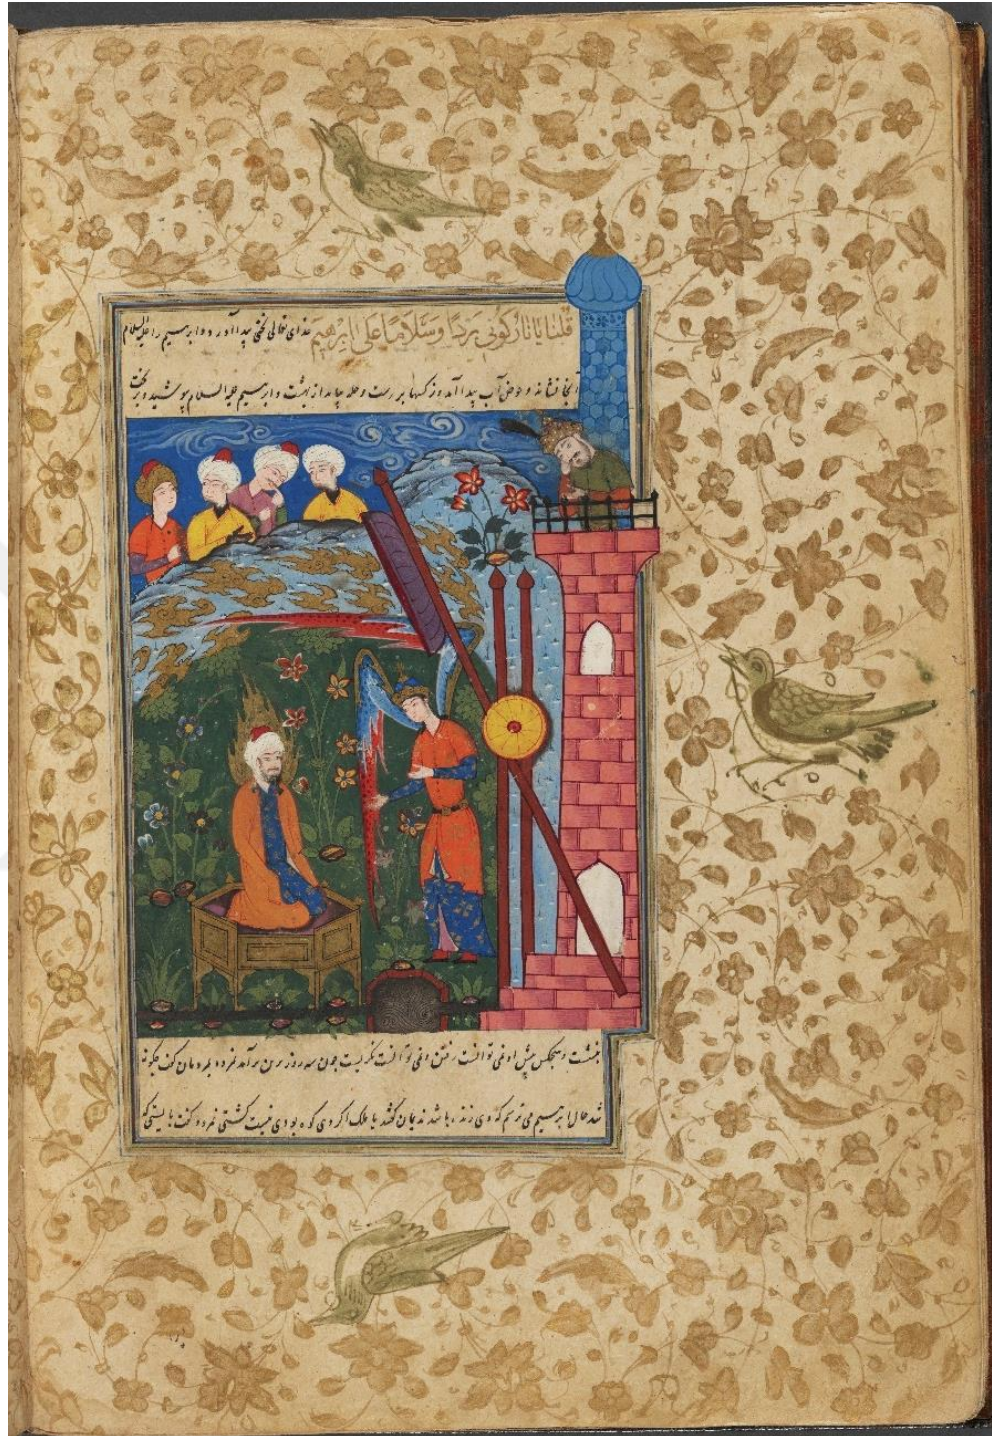 قُلْنَا يَا نَارُ كُونِي بَرْدًا وَسَلَامًا عَلَى اِبْرٰهِيمَ خدای تعالی تختی پیدا آورد و ابرهیم را علیه السلام
آنجا نشاند و حوض آب پیدا آمد و نرکسها بر رست و حله بیامد از بهشت و ابرهیم علیه السلام پوشید و بر تخت
بنشست و هیچکس پیش او نمی توانست رفتن و نمی توانست نکریست چون سه روز برین برآمد نمرود بمردمان کفت چکونه
شد حال ابرهیم می ترسم که وی زنده باشد ندیمان کفتند یا ملک اکر وی کوه بودی نیست کشتی نمرود کفت بایستی که